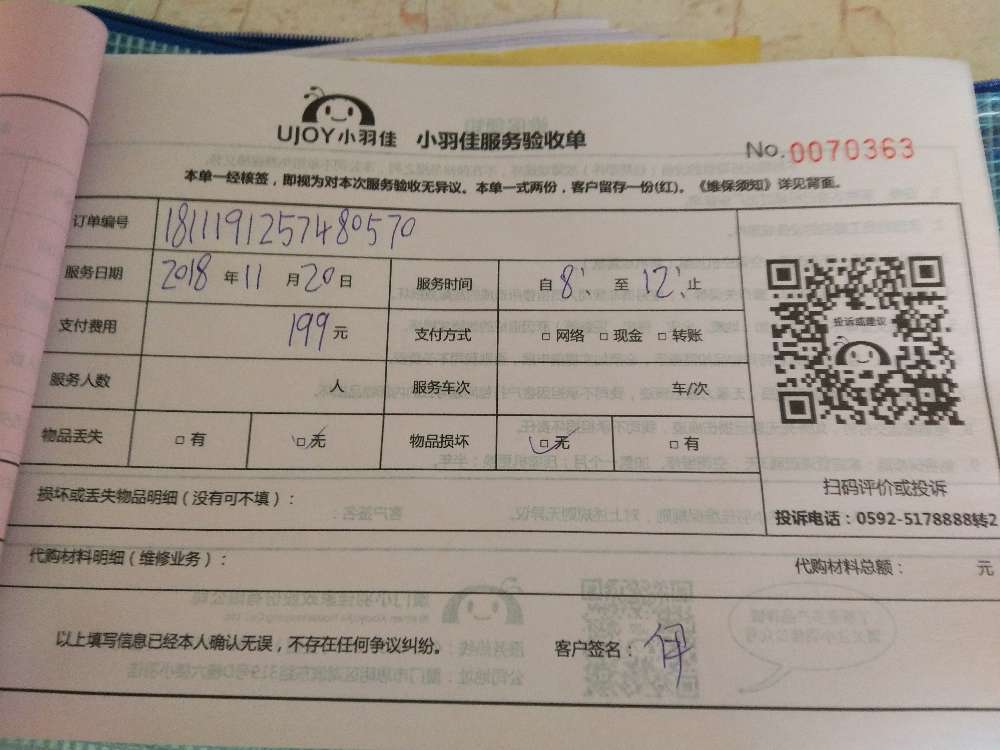 UJOY小羽佳 小羽佳服务验收单
No.0070363
本单一经核签，即视为对本次服务验收无异议。本单一式两份，客户留存一份(红)。《维保须知》详见背面。
订单编号 1811191257480570
服务日期 2018年11月20日 服务时间 自8:至12:止
支付费用 199元 支付方式 □网络 □现金 □转账
投诉或建议
服务人数 人 服务车次 车/次
物品丢失 □有 □无 物品损坏 □无 □有
扫码评价或投诉
损坏或丢失物品明细（没有可不填）：
投诉电话：0592-5178888转2
代购材料明细（维修业务）： 代购材料总额： 元
以上填写信息已经本人确认无误，不存在任何争议纠纷。 客户签名：